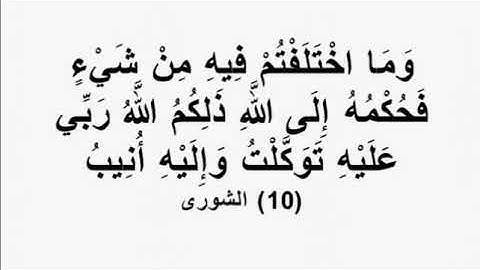 وَمَا اخْتَلَفْتُمْ فِيهِ مِنْ شَيْءٍ
فَحُكْمُهُ إِلَى اللَّهِ ذَلِكُمُ اللَّهُ رَبِّي
عَلَيْهِ تَوَكَّلْتُ وَإِلَيْهِ أُنِيبُ
(10) الشورى